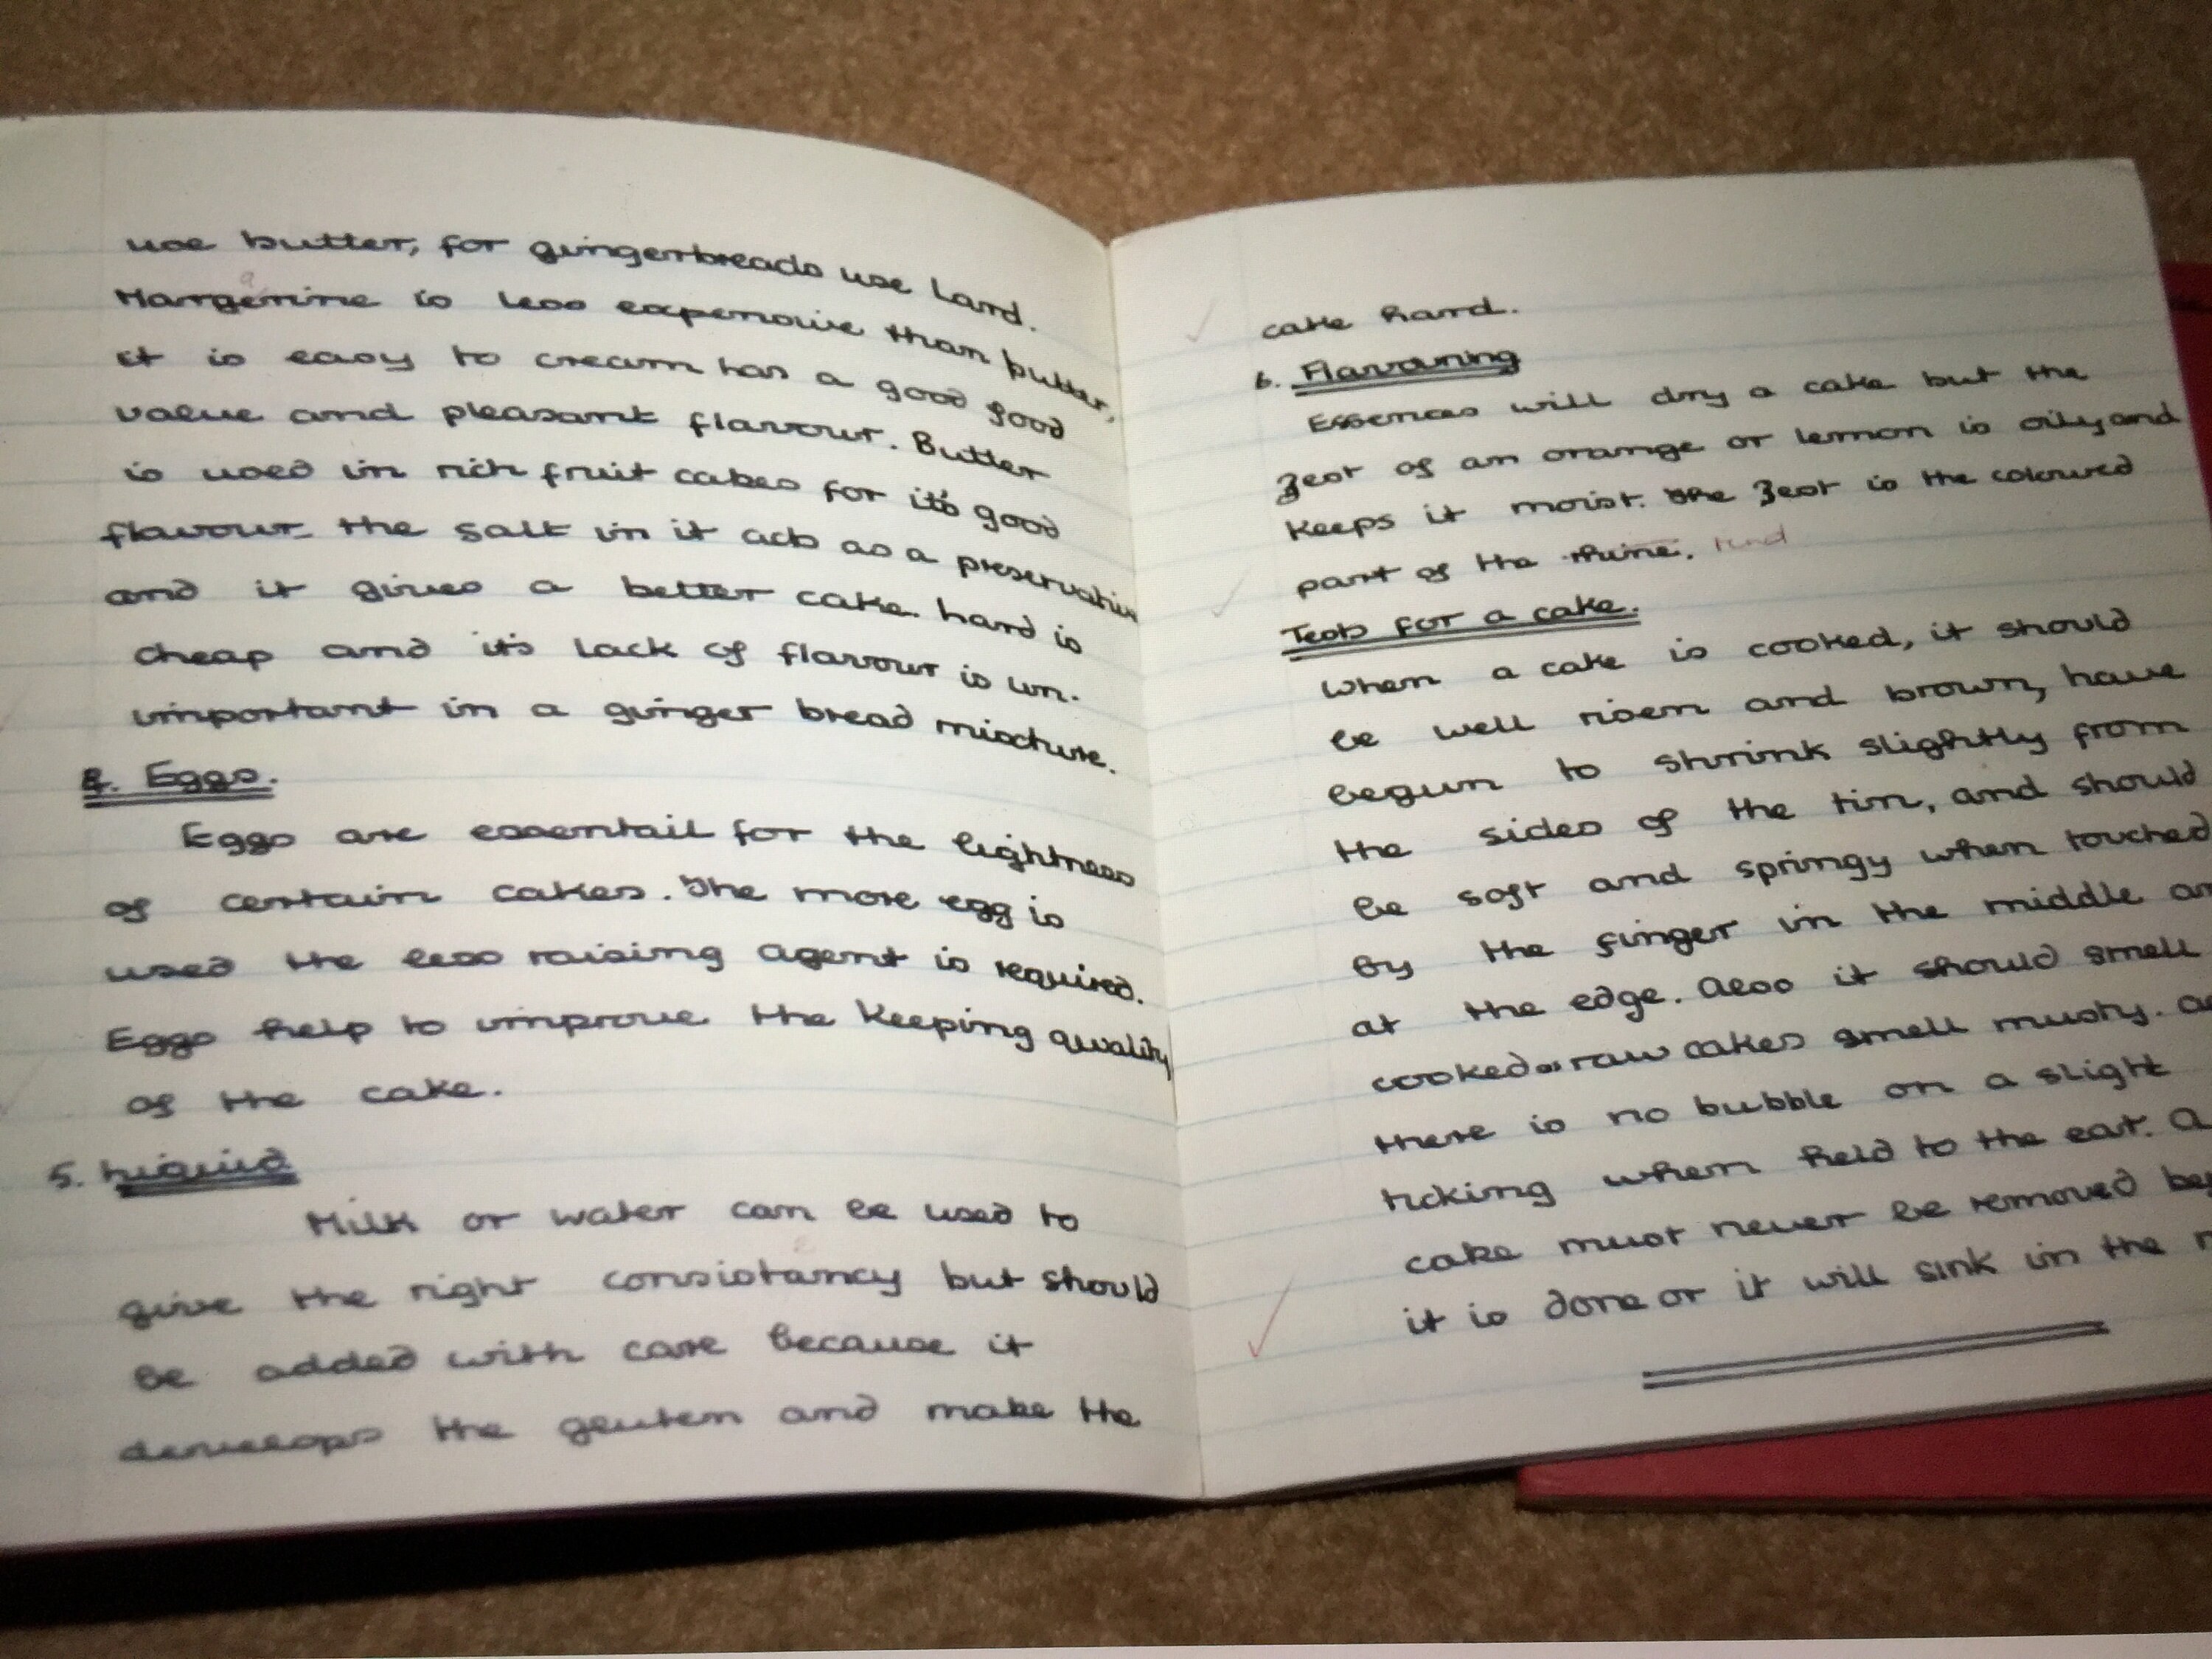 use butter, for gingerbreads use Lard.
a
Margerine is less expensive than butter,
it is easy to cream has a good food
value and pleasant flavour. Butter
is used in rich fruit cakes for it's good
flavour. the salt in it acts as a preservative
and it gives a better cake. Lard is
cheap and it's lack of flavour is un-
important in a ginger bread mixture.
4. Eggs.
Eggs are essentail for the lightness
of certain cakes. The more egg is
used the less raising agent is required.
Eggs help to improve the keeping quality
of the cake.
5. Liquid
Milk or water can be used to
e
give the right consistancy but should
be added with care because it
develops the gluten and make the
cake hard.
6. Flavouring
Essences will dry a cake but the
zest of an orange or lemon is oily and
keeps it moist. The zest is the coloured
part of the rhine. rind
Tests for a cake.
When a cake is cooked, it should
be well risen and brown, have
begun to shrink slightly from
the sides of the tin, and should
be soft and springy when touched
by the finger in the middle
at the edge. Also it should smell
cooked as raw cakes smell mushy.
there is no bubble on a slight
ticking when held to the ear. A
cake must never be removed
it is done or it will sink in the